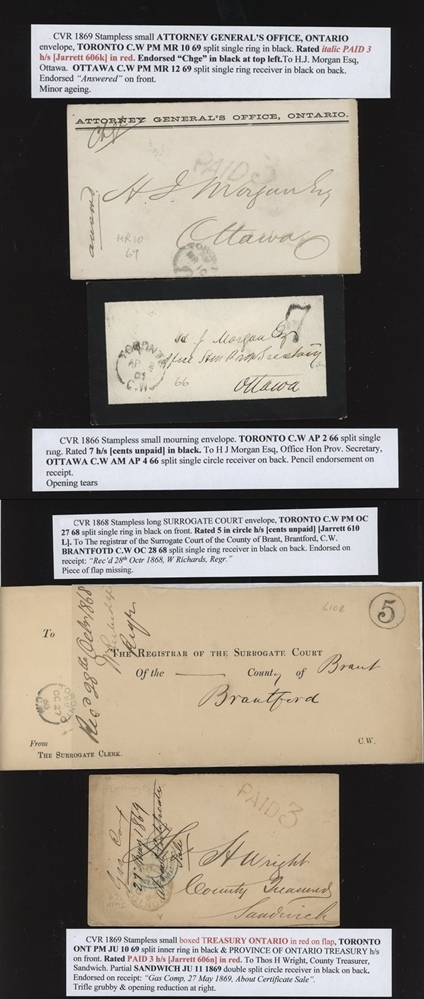 CVR 1869 Stampless small ATTORNEY GENERAL'S OFFICE, ONTARIO
envelope, TORONTO C.W PM MR 10 69 split single ring in black. Rated italic PAID 3
h/s [Jarrett 606k] in red. Endorsed “Chge” in black at top left.To H.J. Morgan Esq,
Ottawa. OTTAWA C.W PM MR 12 69 split single ring receiver in black on back.
Endorsed “Answered” on front.
Minor ageing.
ATTORNEY GENERAL'S OFFICE, ONTARIO.
Chge
PAID 3
answered
H. J. Morgan Esq
Ottawa
MR 10
69
TORONTO
7
TORONTO
AP
C.W
H J Morgan Esq
Office Hon Prov Secretary
66
Ottawa
CVR 1866 Stampless small mourning envelope. TORONTO C.W AP 2 66 split single
ring. Rated 7 h/s [cents unpaid] in black. To H J Morgan Esq, Office Hon Prov. Secretary,
OTTAWA C.W AM AP 4 66 split single circle receiver on back. Pencil endorsement on
receipt.
Opening tears
CVR 1868 Stampless long SURROGATE COURT envelope, TORONTO C.W PM OC
27 68 split single ring in black on front. Rated 5 in circle h/s [cents unpaid] [Jarrett 610
L]. To The registrar of the Surrogate Court of the County of Brant, Brantford, C.W.
BRANTFOTD C.W OC 28 68 split single ring receiver in black on back. Endorsed on
receipt: “Rec'd 28th Octr 1868, W Richards, Regr.”
Piece of flap missing.
Rec'd 28th Octr 1868
W Richards
Regr
5
To
THE REGISTRAR OF THE SURROGATE COURT
Of the County of Brant
Brantford
OC 27
From
THE SURROGATE CLERK.
C.W.
Gas Comp
27 May 1869
About Certificate
Sale
PAID 3
H Wright
County Treasurer
Sandwich
CVR 1869 Stampless small boxed TREASURY ONTARIO in red on flap, TORONTO
ONT PM JU 10 69 split inner ring in black & PROVINCE OF ONTARIO TREASURY h/s
on front. Rated PAID 3 h/s [Jarrett 606n] in red. To Thos H Wright, County Treasurer,
Sandwich. Partial SANDWICH JU 11 1869 double split circle receiver in black on back.
Endorsed on receipt: “Gas Comp, 27 May 1869, About Certificate Sale”.
Trifle grubby & opening reduction at right.